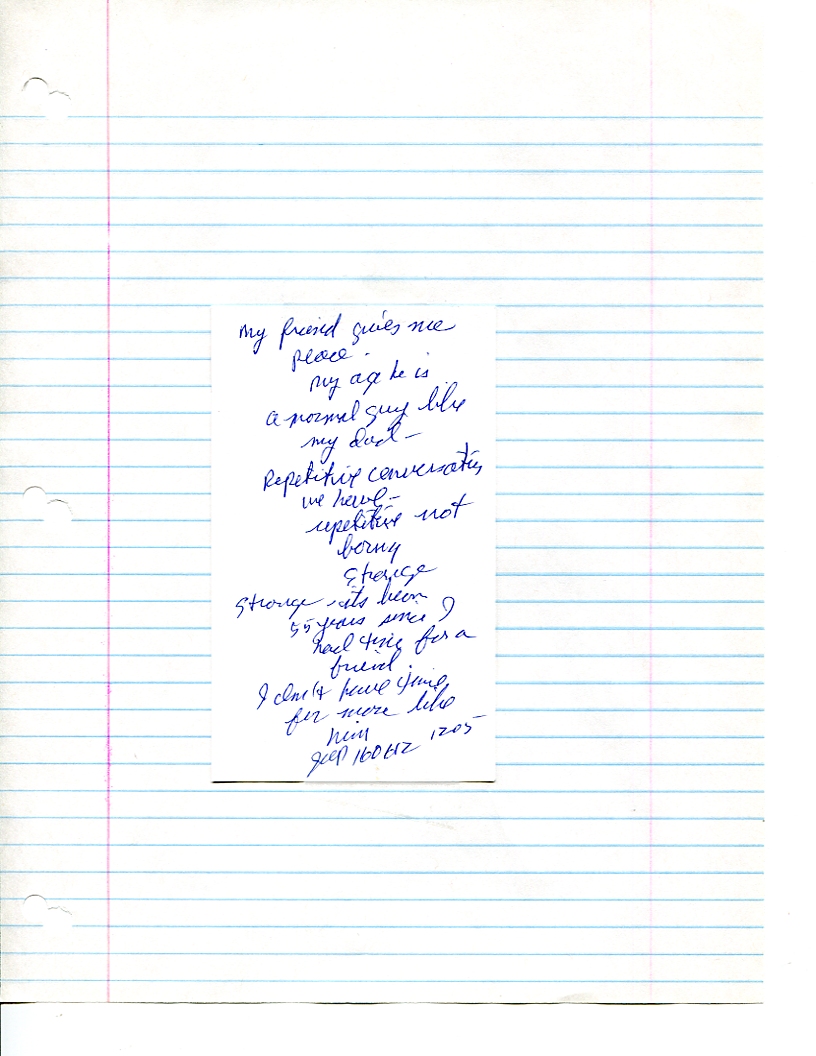 my friend gives me
peace.
my age he is
a normal guy like
my dad -
Repetitive conversations
we have -
repetitive not
boring
strange
strange - its been
55 years since I
had time for a
friend
I don't have time
for more like
him
160612 1205